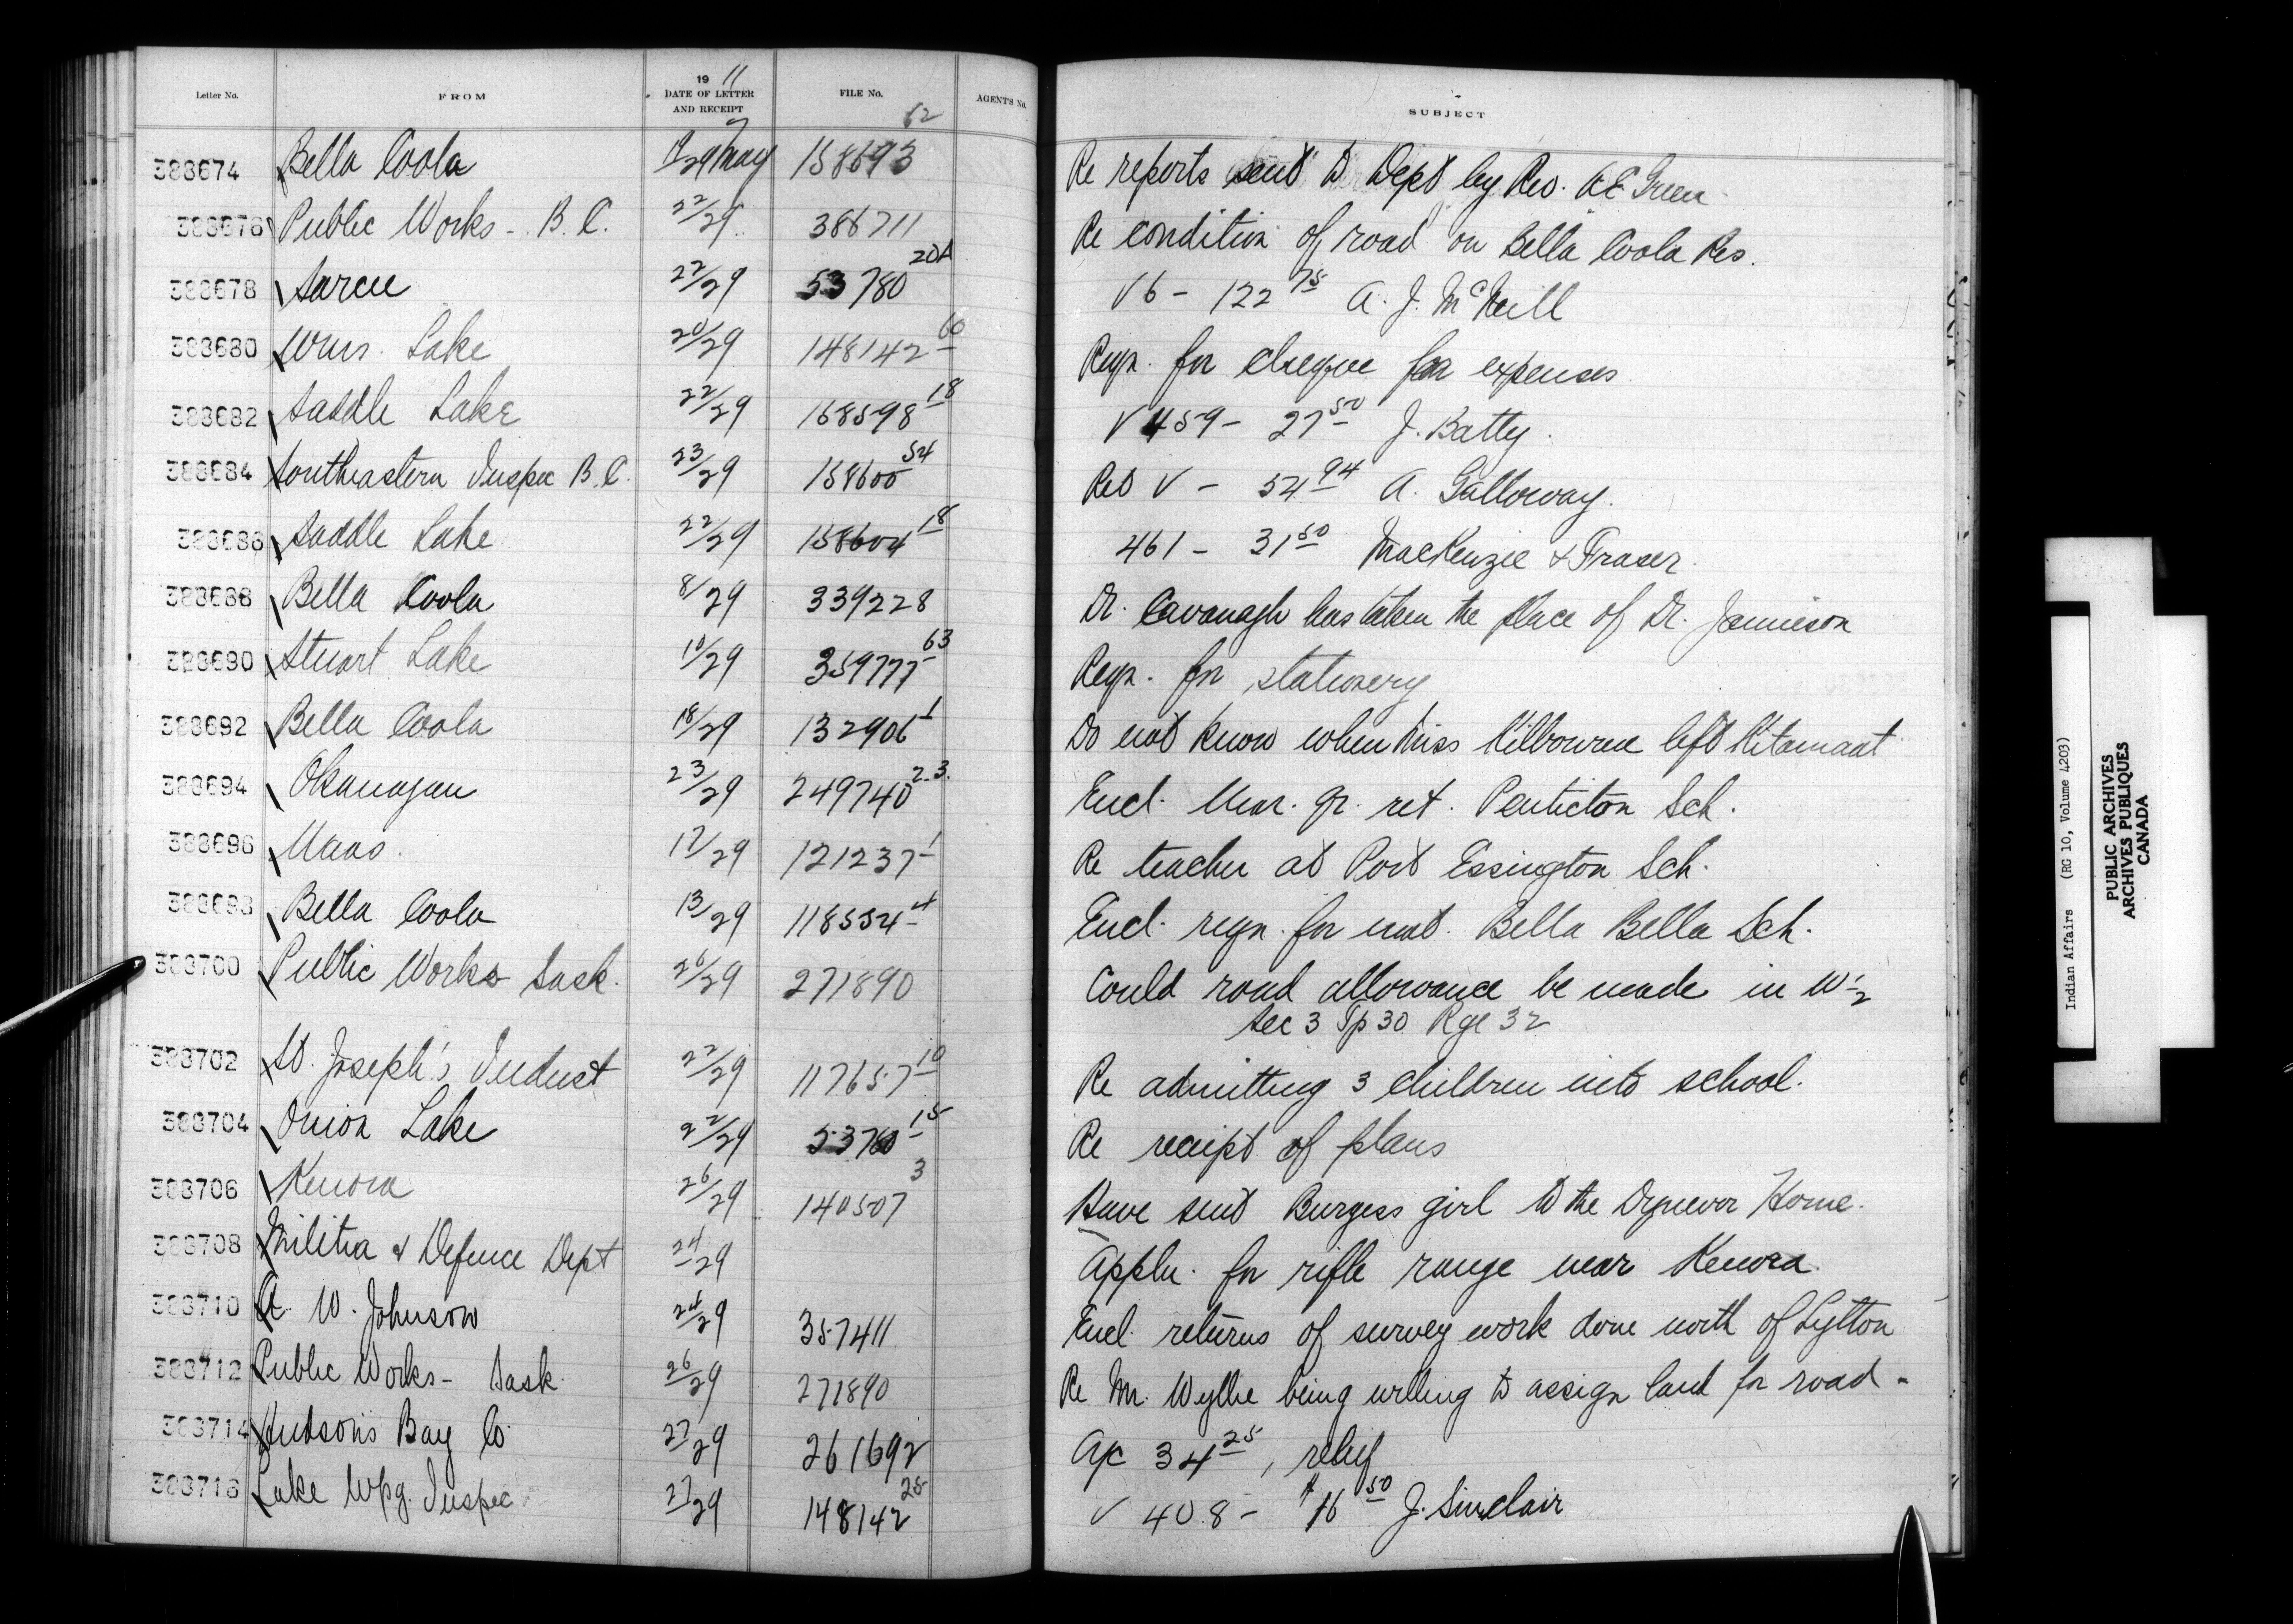 Letter No. FROM 19 11 DATE OF LETTER AND RECEIPT FILE No. AGENT'S No. SUBJECT
388674 Bella Coola 29 May 158693 62 Re reports sent to Dept by Rev. A E Green
388676 Public Works - B.C. 22/29 386711 Re condition of road on Bella Coola Res.
388678 Sarcee 22/29 53780 20A V 6 - 122 75 A. J. McNeill
388680 Wms. Lake 20/29 148142 60 Reqn. for cheque for expenses
388682 Saddle Lake 22/29 158598 18 V 459 - 27 50 J. Batty.
388684 Southeastern Inspec B.C. 23/29 158600 54 Ret V - 54 94 A. Galloway.
388686 Saddle Lake 22/29 158604 18 461 - 31 50 MacKenzie & Fraser.
388688 Bella Coola 8/29 339228 Dr. Cavanagh has taken the place of Dr. Jamieson
388690 Stuart Lake 10/29 359777 63 Reqn. for stationery
388692 Bella Coola 18/29 132906 1 Do not know when Miss Kilbourne left Kitamaat
388694 Okanagan 23/29 249740 2.3. Encl. Mar. qr. ret. Penticton Sch.
388696 Naas. 17/29 121237 1 Re teacher at Port Essington Sch.
388698 Bella Coola 13/29 118554 4 Encl. reqn. for mat. Bella Bella Sch.
388700 Public Works Sask. 26/29 271890 Could road allowance be made in W ½
Sec 3 Tp 30 Rge 32
388702 St. Joseph's Indust 22/29 117657 10 Re admitting 3 children into school.
388704 Onion Lake 22/29 53760 15 Re receipt of plans
388706 Kenora 26/29 140507 3 Have sent Burgess girl to the Dynevor Home.
388708 Militia & Defence Dept 24/29 Appln. for rifle range near Kenora
388710 A. W. Johnson 24/29 357411 Encl. returns of survey work done north of Lytton
388712 Public Works - Sask. 26/29 271890 Re Mr. Wyllie being willing to assign land for road -
388714 Hudson's Bay Co. 27/29 261692 A/c 34 25, relief
388716 Lake Wpg. Inspec 27/29 148142 25 V 408 - $16 50 J. Sinclair
Indian Affairs (RG 10, Volume 4203)
PUBLIC ARCHIVES
ARCHIVES PUBLIQUES
CANADA